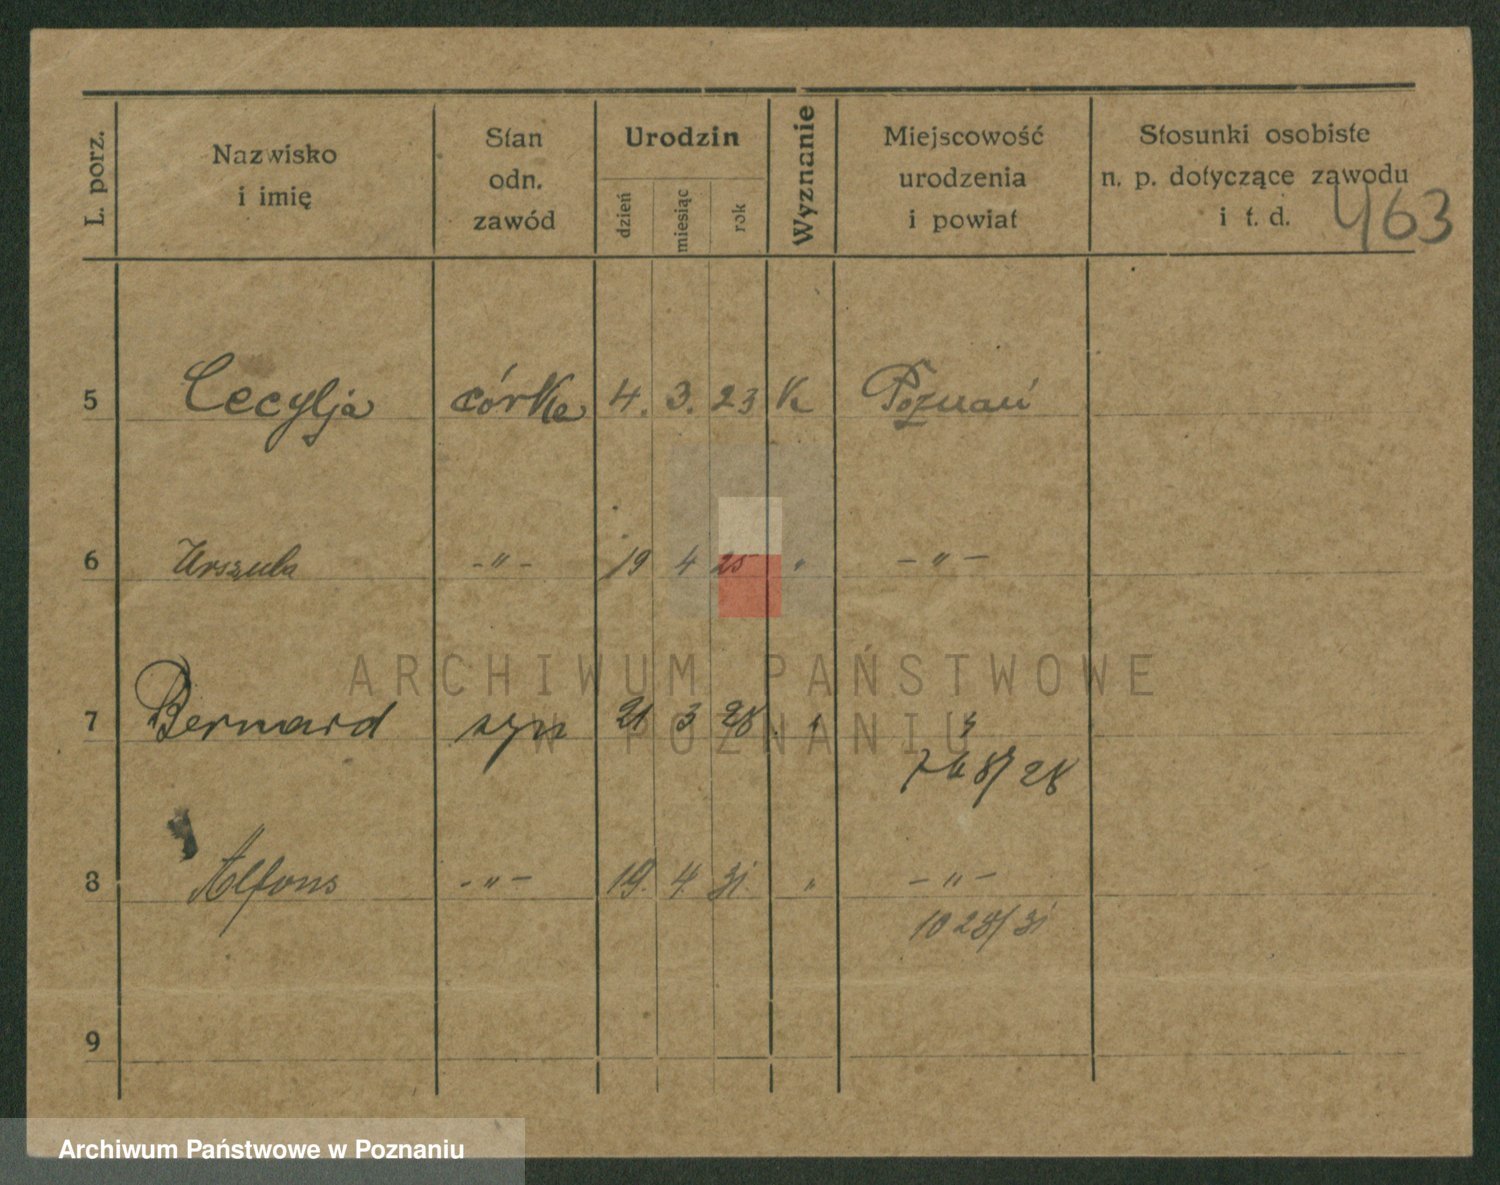 L. porz.
Nazwisko
i imię
Stan
odn.
zawód
Urodzin
dzień
miesiąc
rok
Wyznanie
Miejscowość
urodzenia
i powiat
Stosunki osobiste
n. p. dotyczące zawodu
i t. d.
463
5 Cecylja córka 4. 3. 23 K Poznań
6 Urszula -"- 19 4 25 " -"-
7 Bernard syn 21 3 28 " "
8 Alfons -"- 19. 4. 31 " -"-
1028/31
9
ARCHIWUM PAŃSTWOWE
W POZNANIU
Archiwum Państwowe w Poznaniu